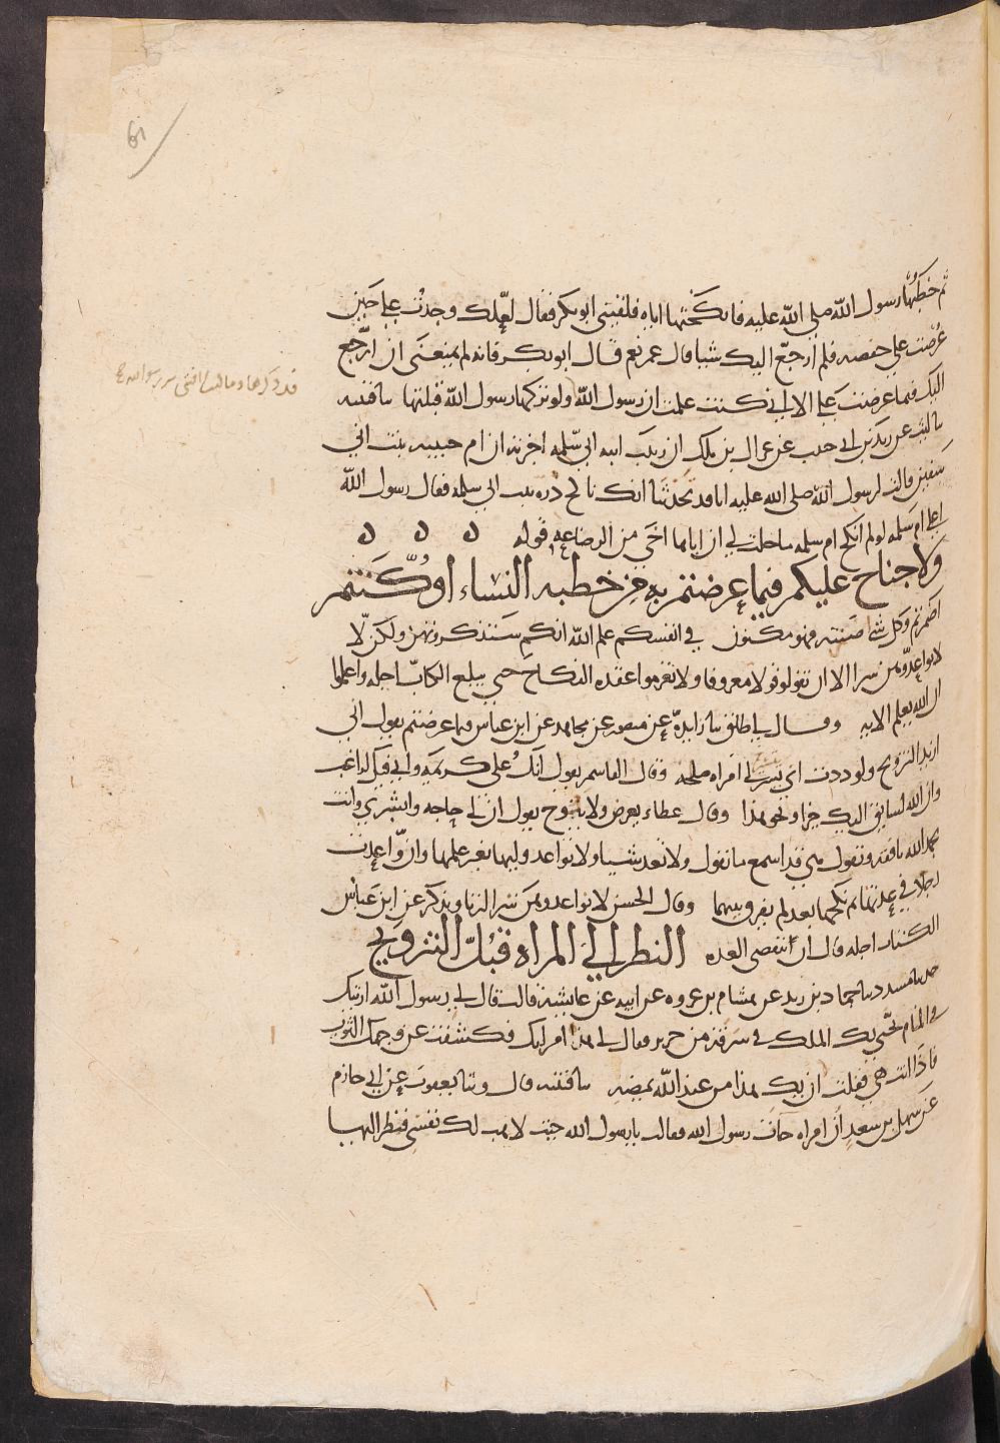 ثم خطبها رسول الله صلى الله عليه فانكحتها اياه فلقيني ابو بكر فقال لعلك وجدت علي حين
عرضت علي حفصه فلم ارجع اليك شيا قال عمر نعم قال ابو بكر فانه لم يمنعني ان ارجع
اليك فيما عرضت علي الا اني كنت علمت ان رسول الله ولو تركها رسول الله قبلتها نا قتيبه
قد ذكرها وما كنت افشي سر رسول الله
نا الليث عن يزيد بن ابي حبيب عن عراك بن ملك ان زينب ابنه ابي سلمه اخبرته ان ام حبيبه بنت ابي
سفين قالت لرسول الله صلى الله عليه انا قد تحدثنا انك ناكح دره بنت ابي سلمه فقال رسول الله
اعلى ام سلمه لو لم انكح ام سلمه ما حلت لي ان اباها اخي من الرضاعه قوله
ولا جناح عليكم فيما عرضتم به من خطبه النساء او كننتم
اضمرتم وكل شي صنته فهو مكنون في انفسكم علم الله انكم ستذكرونهن ولكن لا
تواعدوهن سرا الا ان تقولوا قولا معروفا ولا تعزموا عقده النكاح حتى يبلغ الكتاب اجله واعلموا
ان الله يعلم الايه وقال لي طلق نا زايدة عن منصور عن مجاهد عن ابن عباس فيما عرضتم يقول اني
اريد التزويج ولوددت اني يسر لي امراه صالحه وقال القاسم يقول انك علي كريمه واني فيك لراغب
وان الله لسائق اليك خيرا ونحو هذا وقال عطاء يعرض ولا يبوح يقول ان لي حاجه وابشري وانت
بحمد الله نافقه وتقول هي قد اسمع ما تقول ولا تعد شيا ولا تواعد وليها بغير علمها وان واعدت
رجلا في عدتها ثم نكحها بعد لم يفرق بينهما وقال الحسن لا تواعدوهن سرا الزنا ويذكر عن ابن عباس
الكتاب اجله قال ان تنقضي العده النظر الي المراه قبل التزويج
حدثنا مسدد نا حماد بن زيد عن هشام بن عروه عن ابيه عن عايشه قالت قال لي رسول الله اريتك
في المنام تجي بك الملك في سرقه من حرير فقال لي هذا امراتك فكشفت عن وجهك الثوب
فاذا انت هي فقلت ان يك هذا من عند الله يمضه نا قتيبه قال ونا يعقوب عن ابي حازم
عن سهل بن سعد ان امراه جات رسول الله فقالت يا رسول الله جيت لاهب لك نفسي فنظر اليها